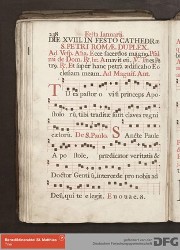 228 Festa Januarij.
DIE XVIII IN FESTO CATHEDRÆ
S. PETRI ROMÆ. DUPLEX.
Ad Vesp. Aña. Ecce sacerdos magnus.
de Dom. Amavit eum. V.
hanc petram ædificabo Ec-
clesiam meam. Ad Magnif. Ant.
Tu es pastor o vium princeps Apo-
stolo rum, tibi traditæ sunt claves regni
cœlorum. De S. Paulo. Sancte Paule
Apo stole, prædicator veritatis &
Doctor Gentium, intercede pro nobis ad
Deum, qui te elegit. Evovae.
Benediktinerabtei St. Matthias
DFG